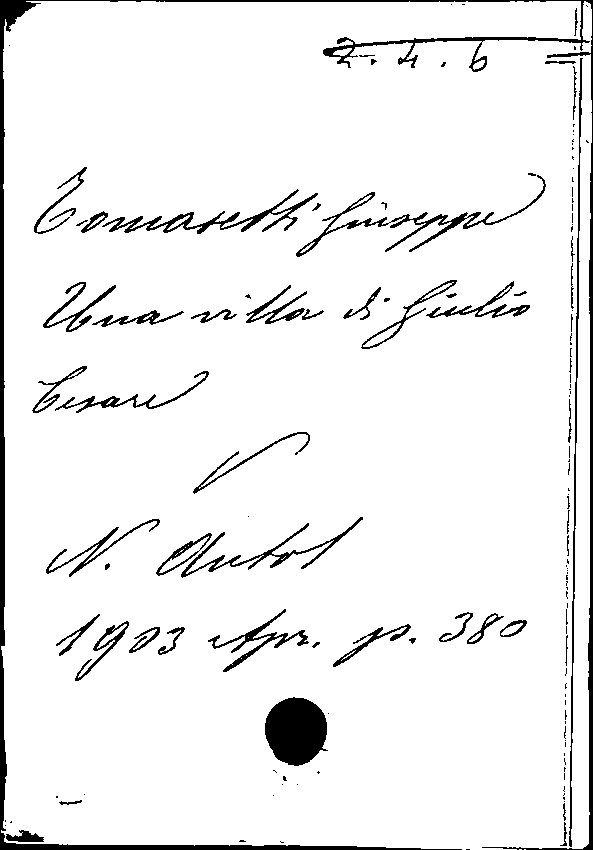 2. 4. 6
Tomasetti Giuseppe
Una villa di Giulio
Cesare
N. Antol
1903 Apr. p. 380